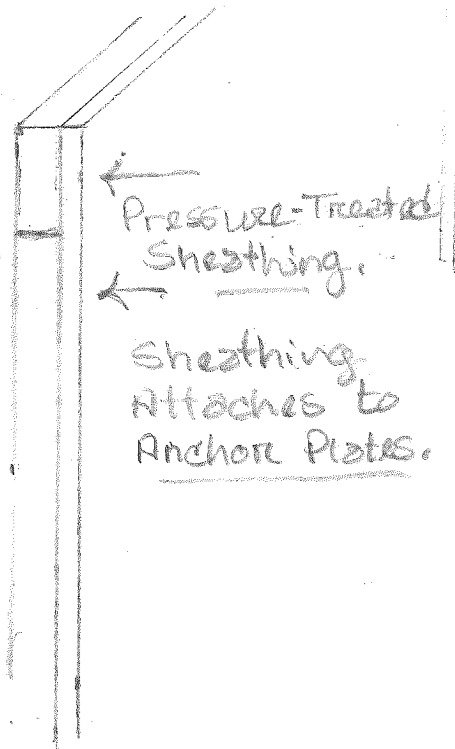 Pressure-Treated
Sheathing.
Sheathing
Attaches to
Anchor Plates.